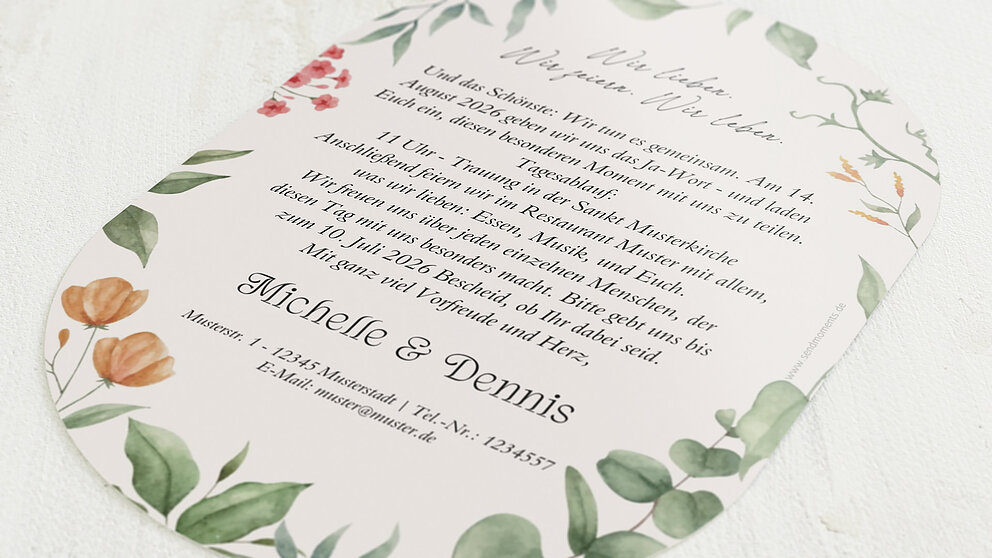 Wir lieben.
Wir feiern. Wir leben.
Und das Schönste: Wir tun es gemeinsam. Am 14.
August 2026 geben wir uns das Ja-Wort - und laden
Euch ein, diesen besonderen Moment mit uns zu teilen.
Tagesablauf:
11 Uhr - Trauung in der Sankt Musterkirche
Anschließend feiern wir im Restaurant Muster mit allem,
was wir lieben: Essen, Musik, und Euch.
Wir freuen uns über jeden einzelnen Menschen, der
diesen Tag mit uns besonders macht. Bitte gebt uns bis
zum 10. Juli 2026 Bescheid, ob Ihr dabei seid.
Mit ganz viel Vorfreude und Herz,
Michelle & Dennis
Musterstr. 1 - 12345 Musterstadt | Tel.-Nr.: 1234557
E-Mail: muster@muster.de
www.sendmoments.de